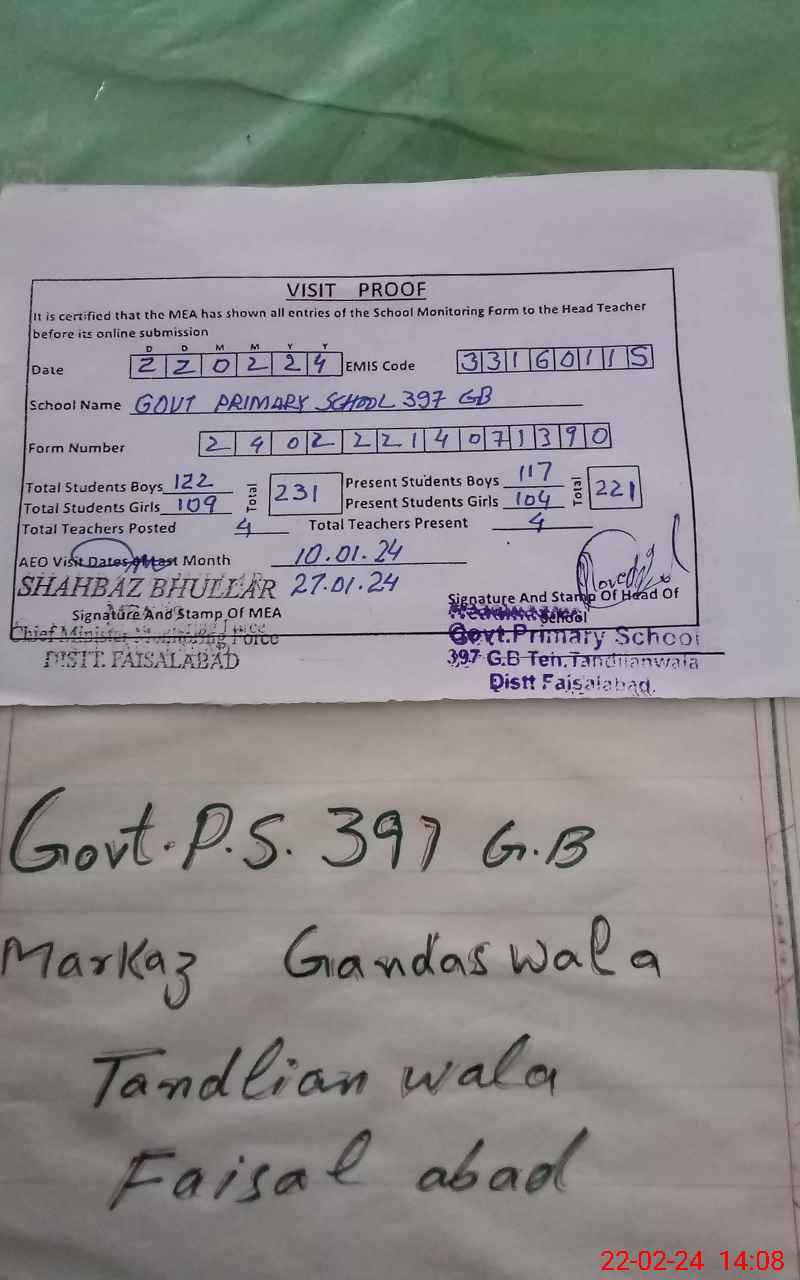 VISIT PROOF
It is certified that the MEA has shown all entries of the School Monitoring Form to the Head Teacher
before its online submission
D D M M Y Y
Date 2 2 0 2 2 4 EMIS Code 3 3 1 6 0 1 1 5
School Name GOVT PRIMARY SCHOOL 397 GB
Form Number 2 4 02 2 2 1 4 0 7 1 3 9 0
Total Students Boys 122 Total 231 Present Students Boys 117 Total 221
Total Students Girls 109 Present Students Girls 104
Total Teachers Posted 4 Total Teachers Present 4
AEO Visit Dates Last Month 10.01.24
SHAHBAZ BHULLAR 27.01.24
Signature And Stamp Of MEA
Signature And Stamp Of Head Of
School
Chief Minister Monitoring Force
DISTT. FAISALABAD
Govt.Primary School
397 G.B Teh.Tandlianwala
Distt Faisalabad.
Govt. P.S. 397 G.B
Markaz Gandas wala
Tandlian wala
Faisal abad
22-02-24 14:08